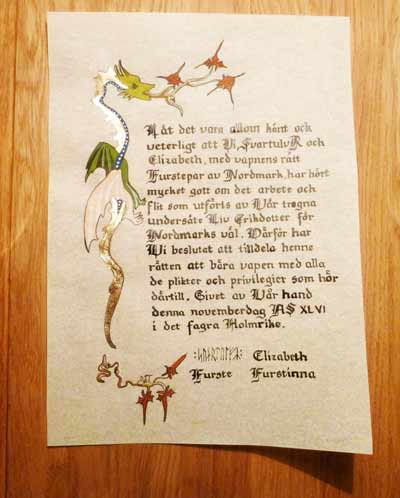 Låt det vara allom känt och
veterligt att Vi, SvartulvR och
Elizabeth, med vapnens rätt
Furstepar av Nordmark, har hört
mycket gott om det arbete och
flit som utförts av Vår trogna
undersåte Liv Eriksdotter för
Nordmarks väl. Därför har
Vi beslutat att tilldela henne
rätten att bära vapen med alla
de plikter och privilegier som hör
därtill. Givet av Vår hand
denna novemberdag AS XLVI
i det fagra Holmrike.
Elizabeth
Furste Furstinna